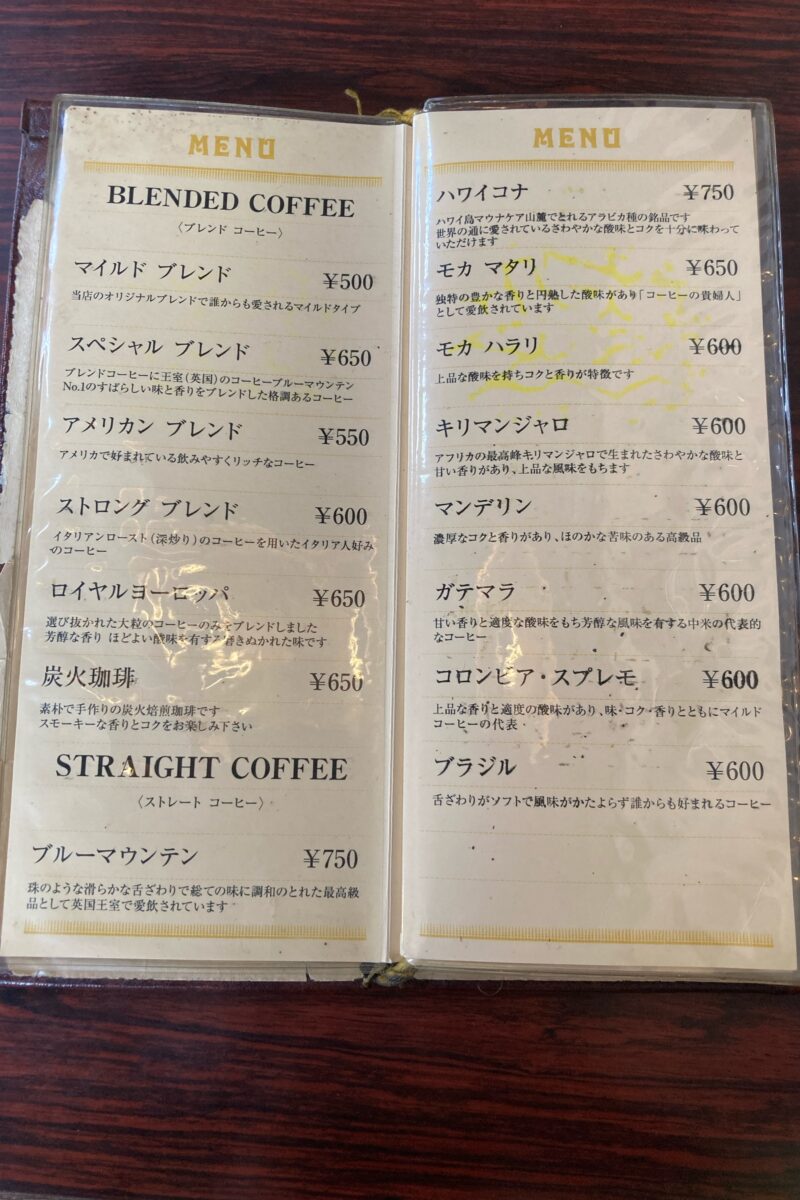 MENU
BLENDED COFFEE
〈ブレンド コーヒー〉
マイルド ブレンド ¥500
当店のオリジナルブレンドで誰からも愛されるマイルドタイプ
スペシャル ブレンド ¥650
ブレンドコーヒーに王室(英国)のコーヒーブルーマウンテン
No.1のすばらしい味と香りをブレンドした格調あるコーヒー
アメリカン ブレンド ¥550
アメリカで好まれている飲みやすくリッチなコーヒー
ストロング ブレンド ¥600
イタリアンロースト(深炒り)のコーヒーを用いたイタリア人好み
のコーヒー
ロイヤルヨーロッパ ¥650
選び抜かれた大粒のコーヒーのみをブレンドしました
芳醇な香り ほどよい酸味を有する磨きぬかれた味です
炭火珈琲 ¥650
素朴で手作りの炭火焙煎珈琲です
スモーキーな香りとコクをお楽しみ下さい
STRAIGHT COFFEE
〈ストレート コーヒー〉
ブルーマウンテン ¥750
珠のような滑らかな舌ざわりで総ての味に調和のとれた最高級
品として英国王室で愛飲されています
MENU
ハワイコナ ¥750
ハワイ島マウナケア山麓でとれるアラビカ種の銘品です
世界の通に愛されているさわやかな酸味とコクを十分に味わって
いただけます
モカ マタリ ¥650
独特の豊かな香りと円熟した酸味があり「コーヒーの貴婦人」
として愛飲されています
モカ ハラリ ¥600
上品な酸味を持ちコクと香りが特徴です
キリマンジャロ ¥600
アフリカの最高峰キリマンジャロで生まれたさわやかな酸味と
甘い香りがあり、上品な風味をもちます
マンデリン ¥600
濃厚なコクと香りがあり、ほのかな苦味のある高級品
ガテマラ ¥600
甘い香りと適度な酸味をもち芳醇な風味を有する中米の代表的
なコーヒー
コロンビア・スプレモ ¥600
上品な香りと適度の酸味があり、味・コク・香りとともにマイルド
コーヒーの代表
ブラジル ¥600
舌ざわりがソフトで風味がかたよらず誰からも好まれるコーヒー